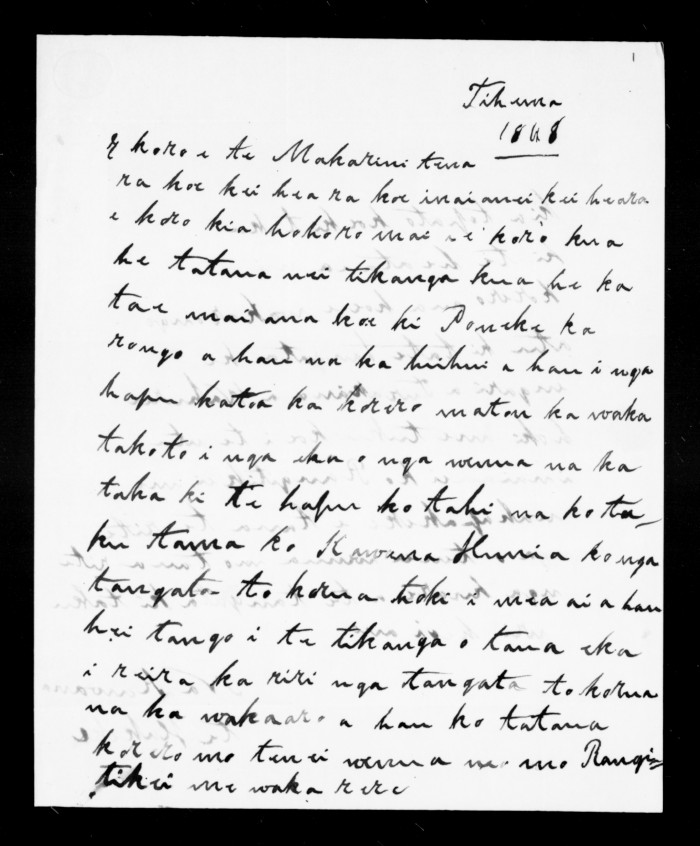 1
Tihema
1868
E koro e te Makarini tena
ra koe kei hea ra koe inaianei kei heara
e koro kia hohoro mai e koro kua
he tatana nei tikanga kua he ka
tae mai ana koe ki Poneke ka
rongo a hau na ka huihui a hau i nga
hapu katoa ka korero matou ka waka
takoto i nga eka o nga wenua na ka
taka ki te hapu ko tahi na ko ta-
ku tama ko Kawana Hunia ko nga
tangata tokorua hoki i mea ai a hau
hei tango i te tikanga o taua eka
i reira ka riri nga tangata tokorua
na ka wakaaro a hau ko tatana
korero mo tenei wenua mo Rangi=
tikei me waka rere